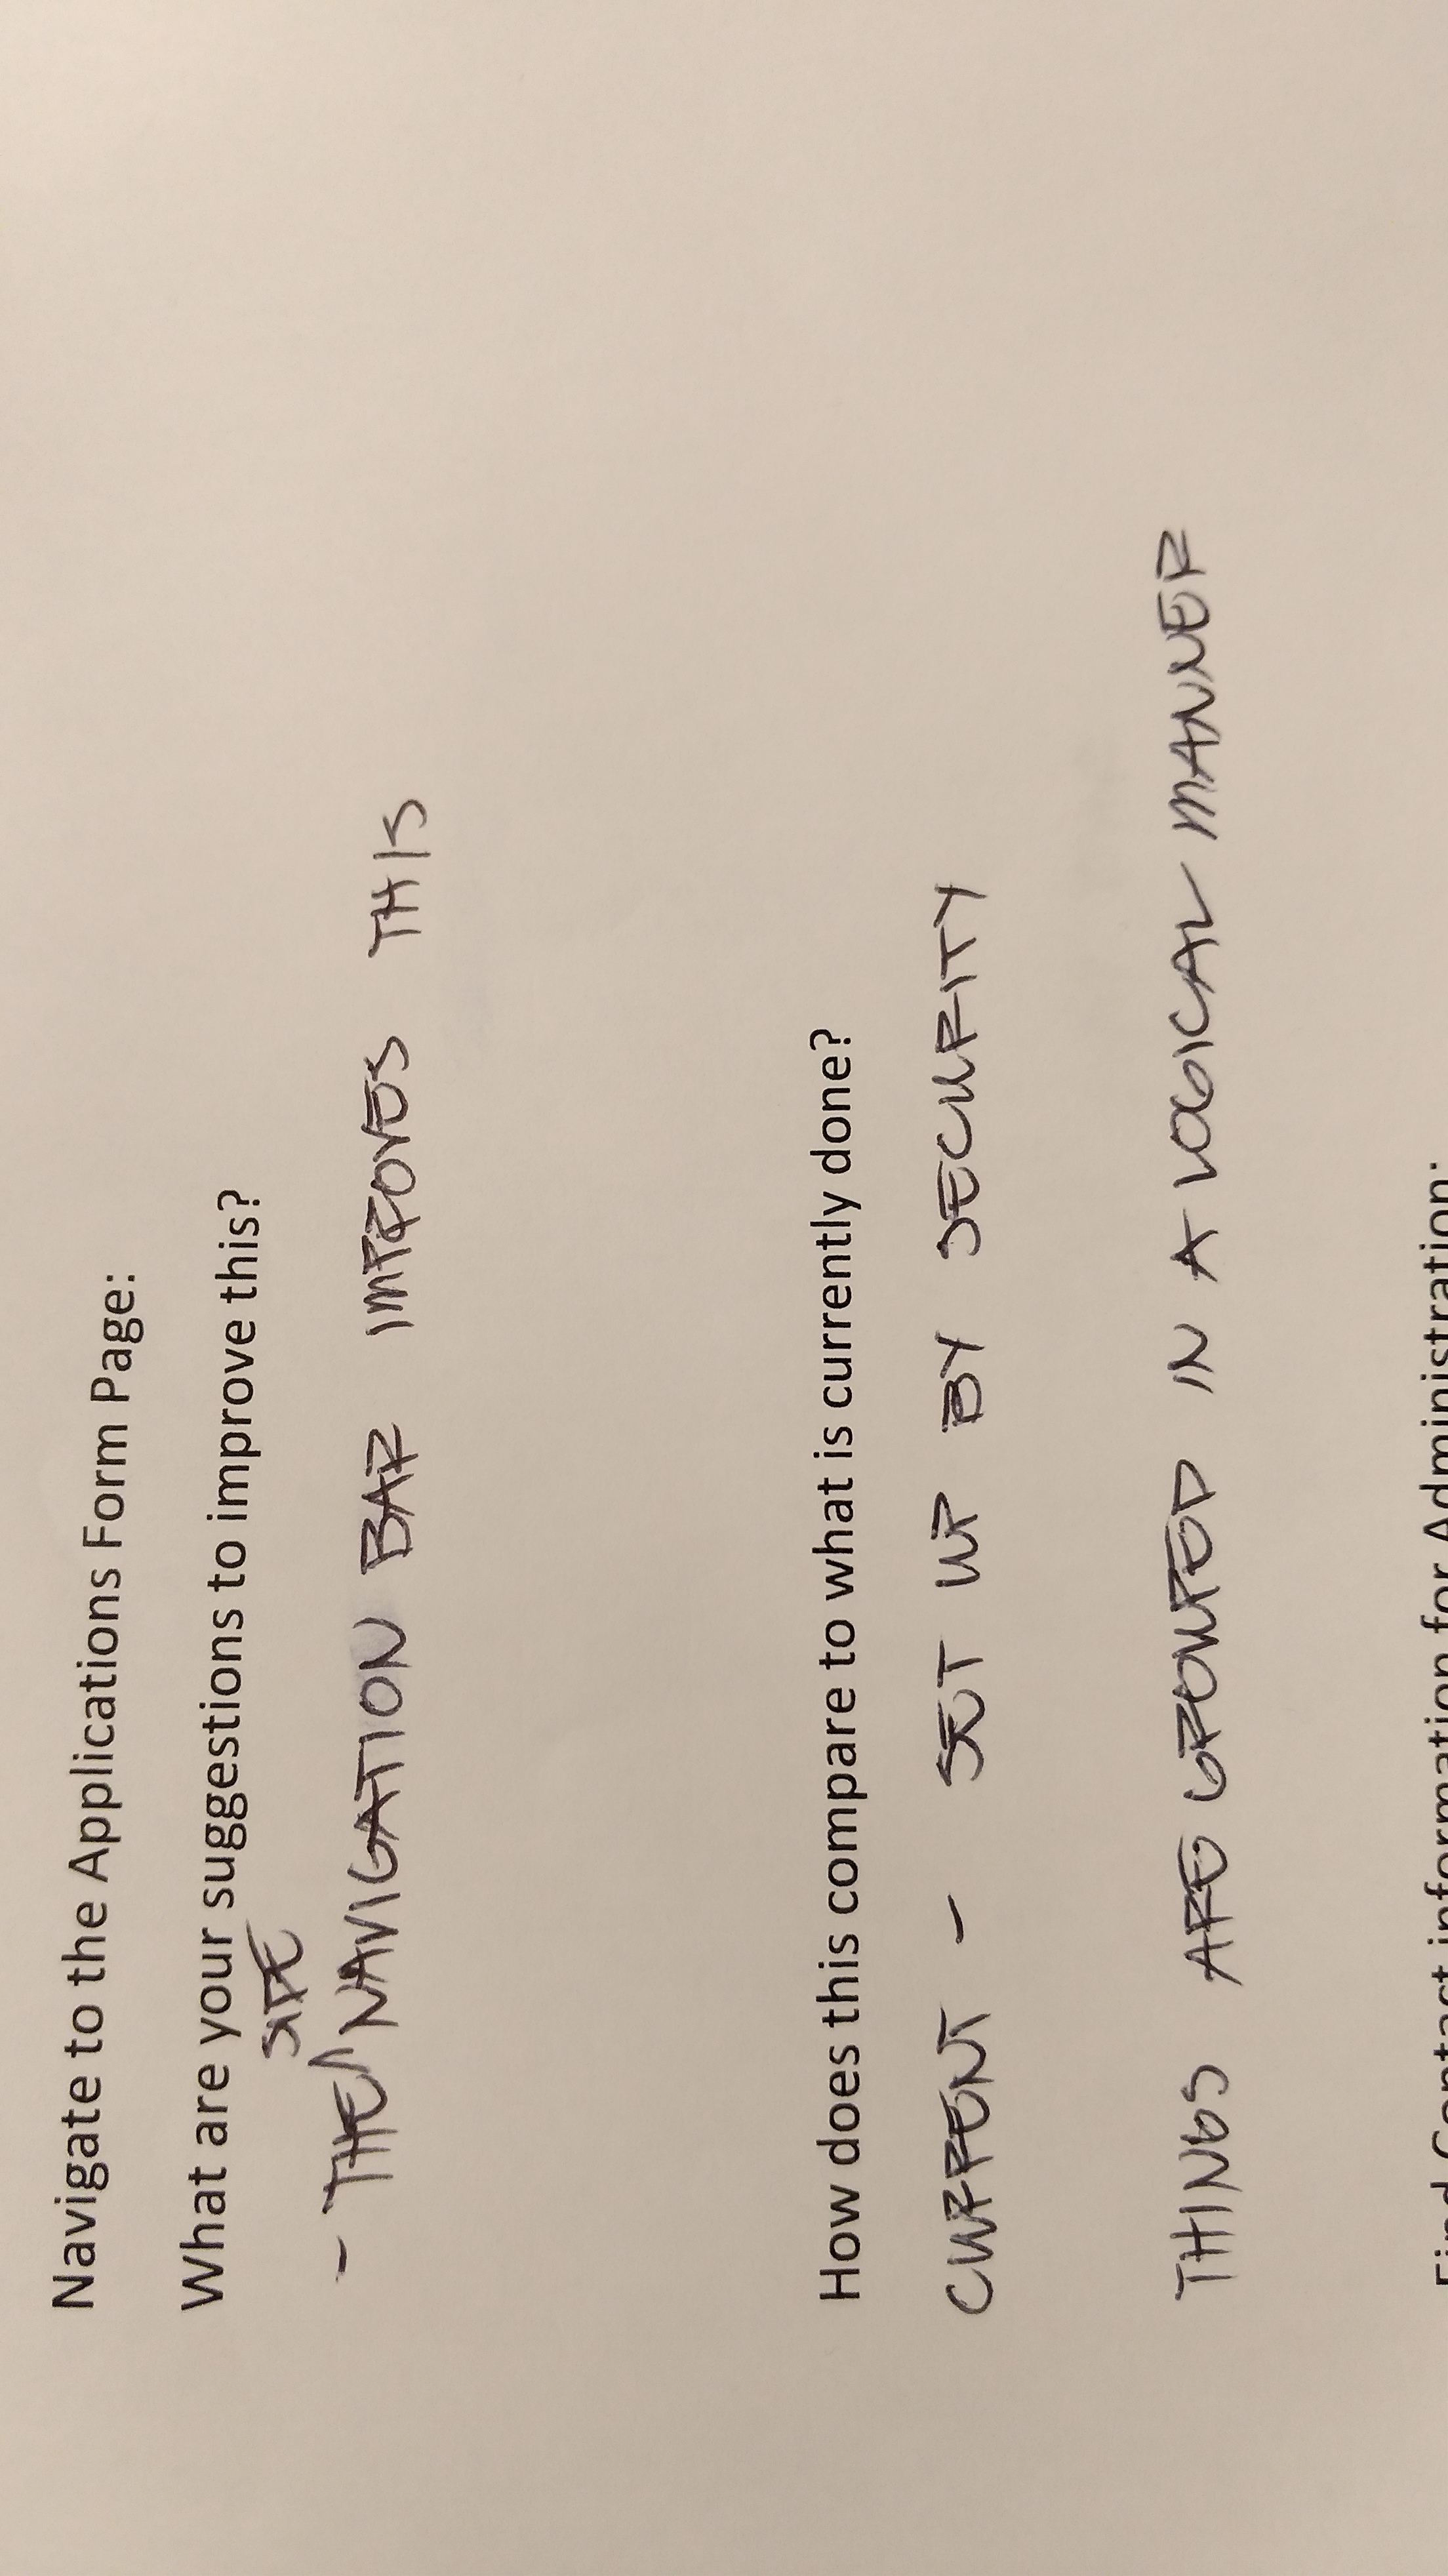 Navigate to the Applications Form Page:
What are your suggestions to improve this?
SIDE
- THE ^ NAVIGATION BAR IMPROVES THIS
How does this compare to what is currently done?
CURRENT - SET UP BY SECURITY
THINGS ARE GROUPED IN A LOGICAL MANNER
Find Contact information for Administration: